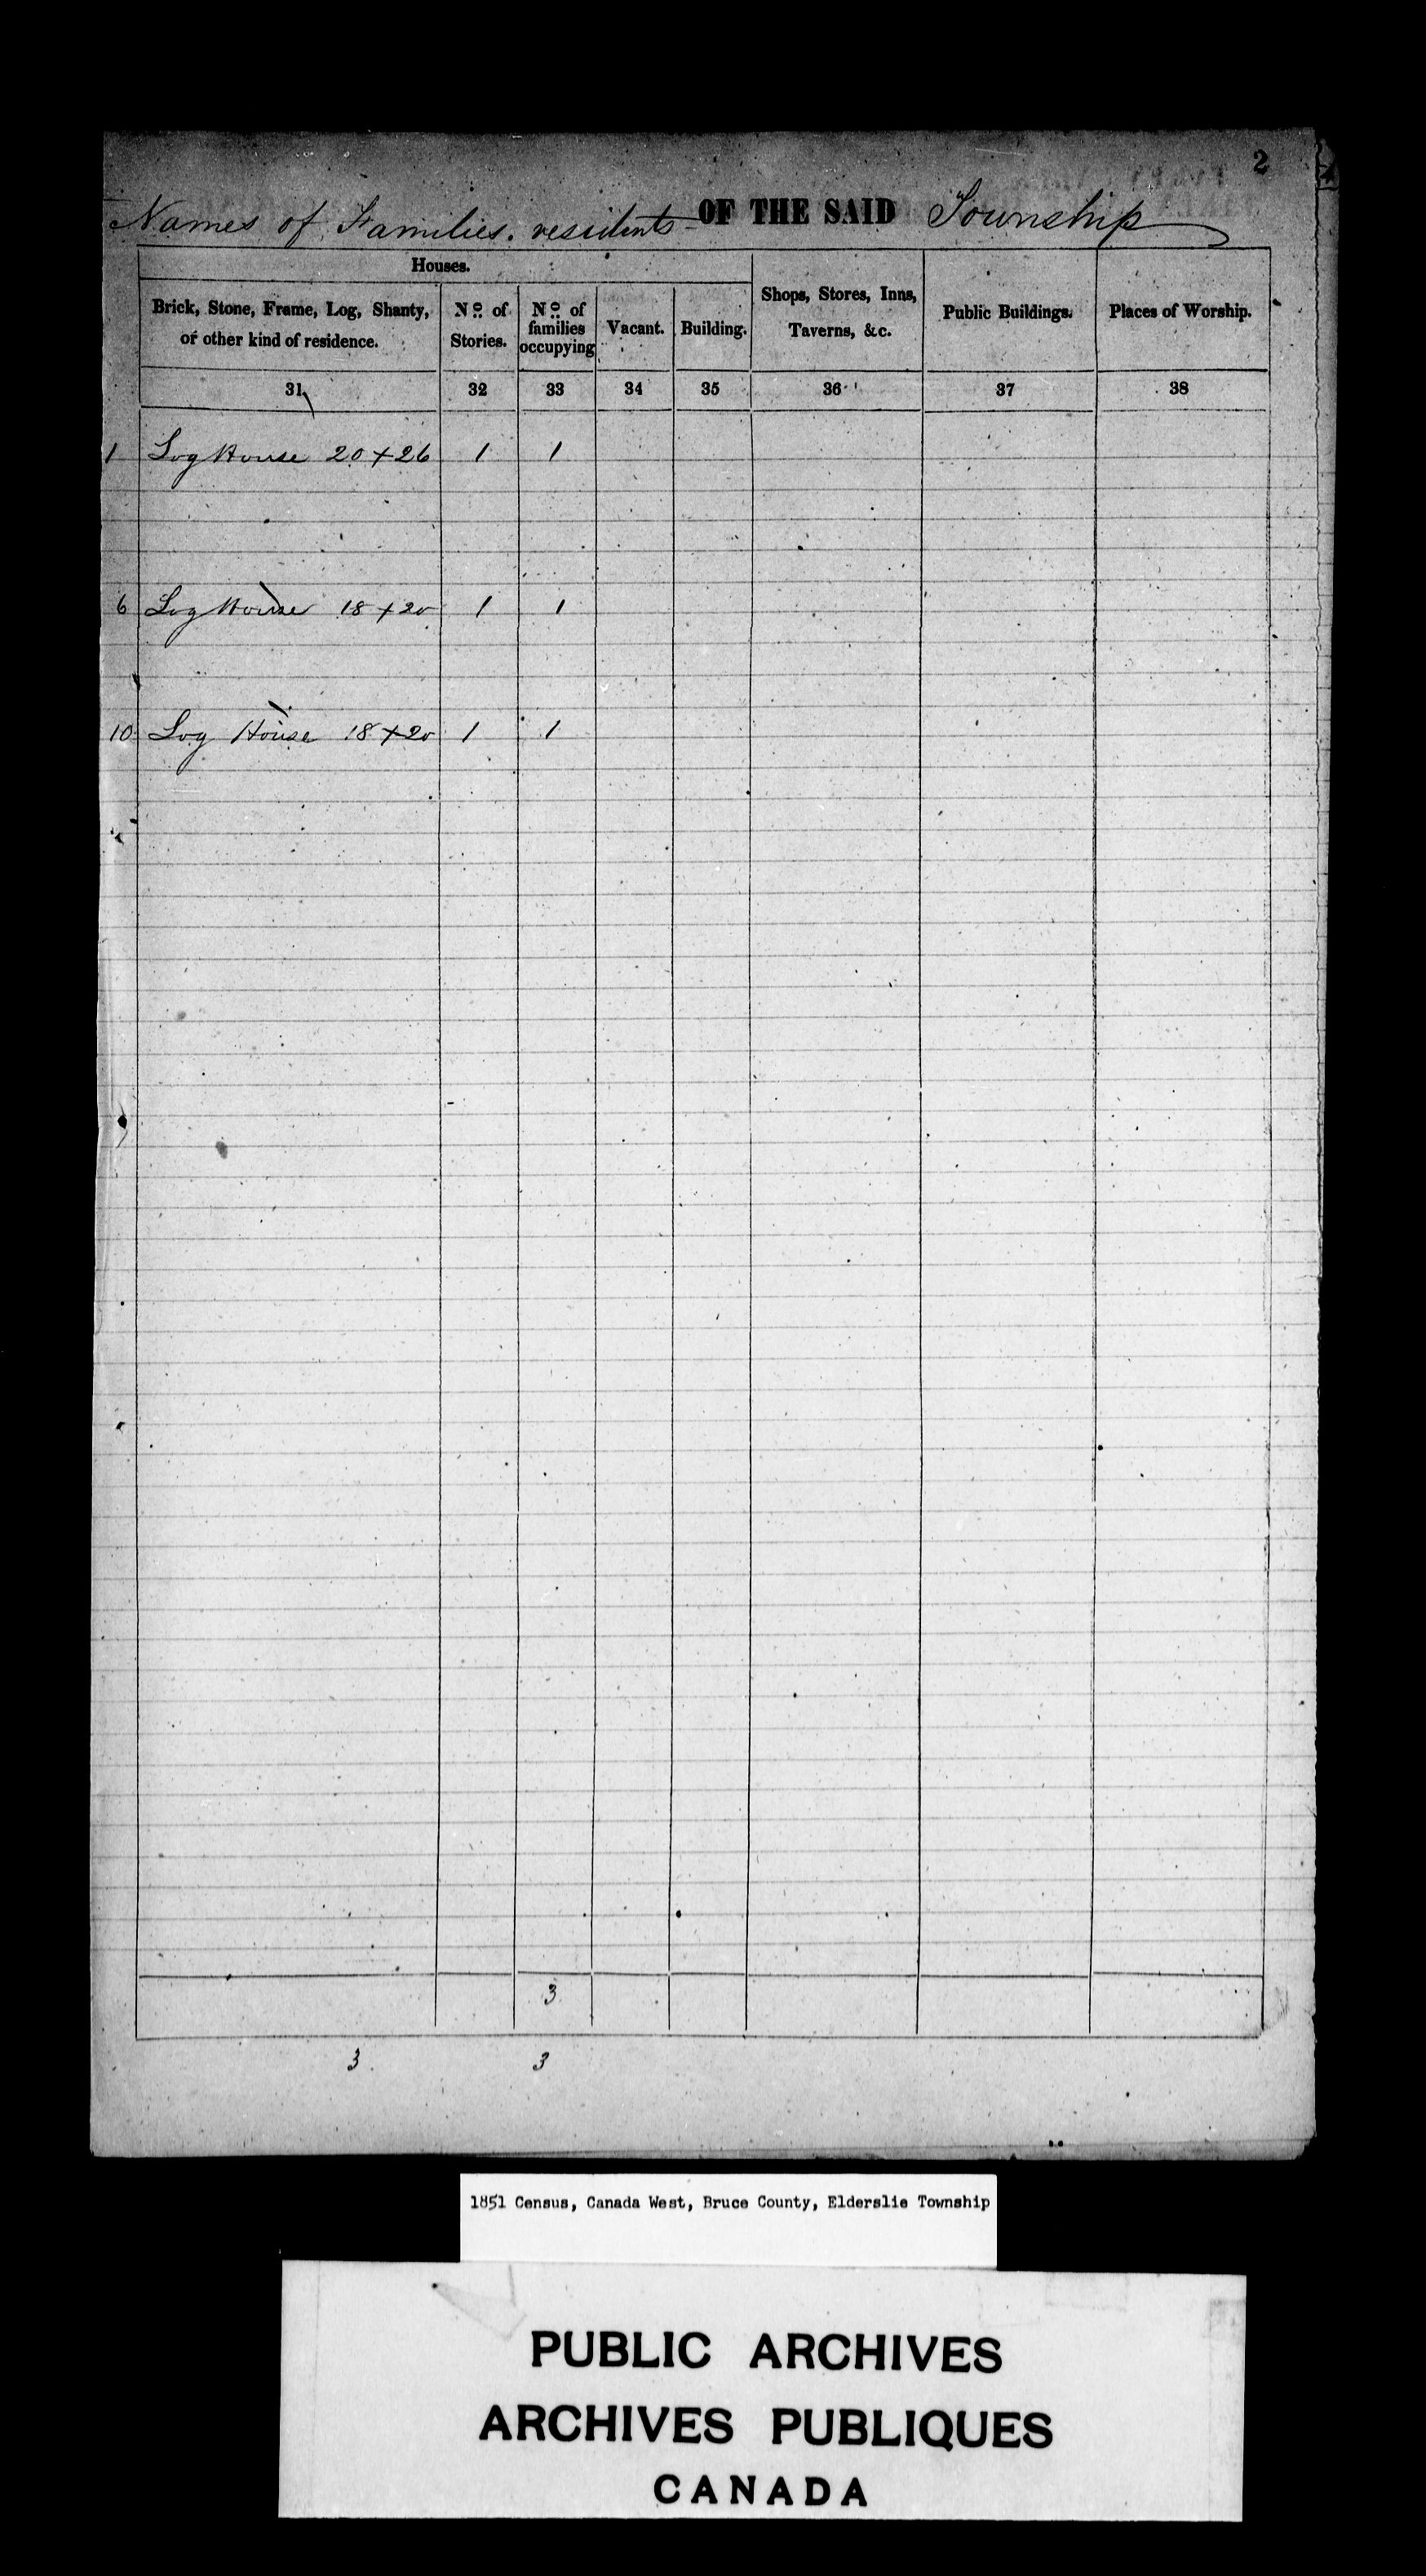 2
Names of Families. residents OF THE SAID Township
Houses.
Brick, Stone, Frame, Log, Shanty, or other kind of residence.
No. of Stories.
No. of families occupying
Vacant.
Building.
Shops, Stores, Inns, Taverns, &c.
Public Buildings.
Places of Worship.
31 32 33 34 35 36 37 38
1 Log House 20 x 26 1 1
6 Log House 18 x 20 1 1
10 Log House 18 x 20 1 1
3
3 3
1851 Census, Canada West, Bruce County, Elderslie Township
PUBLIC ARCHIVES
ARCHIVES PUBLIQUES
CANADA